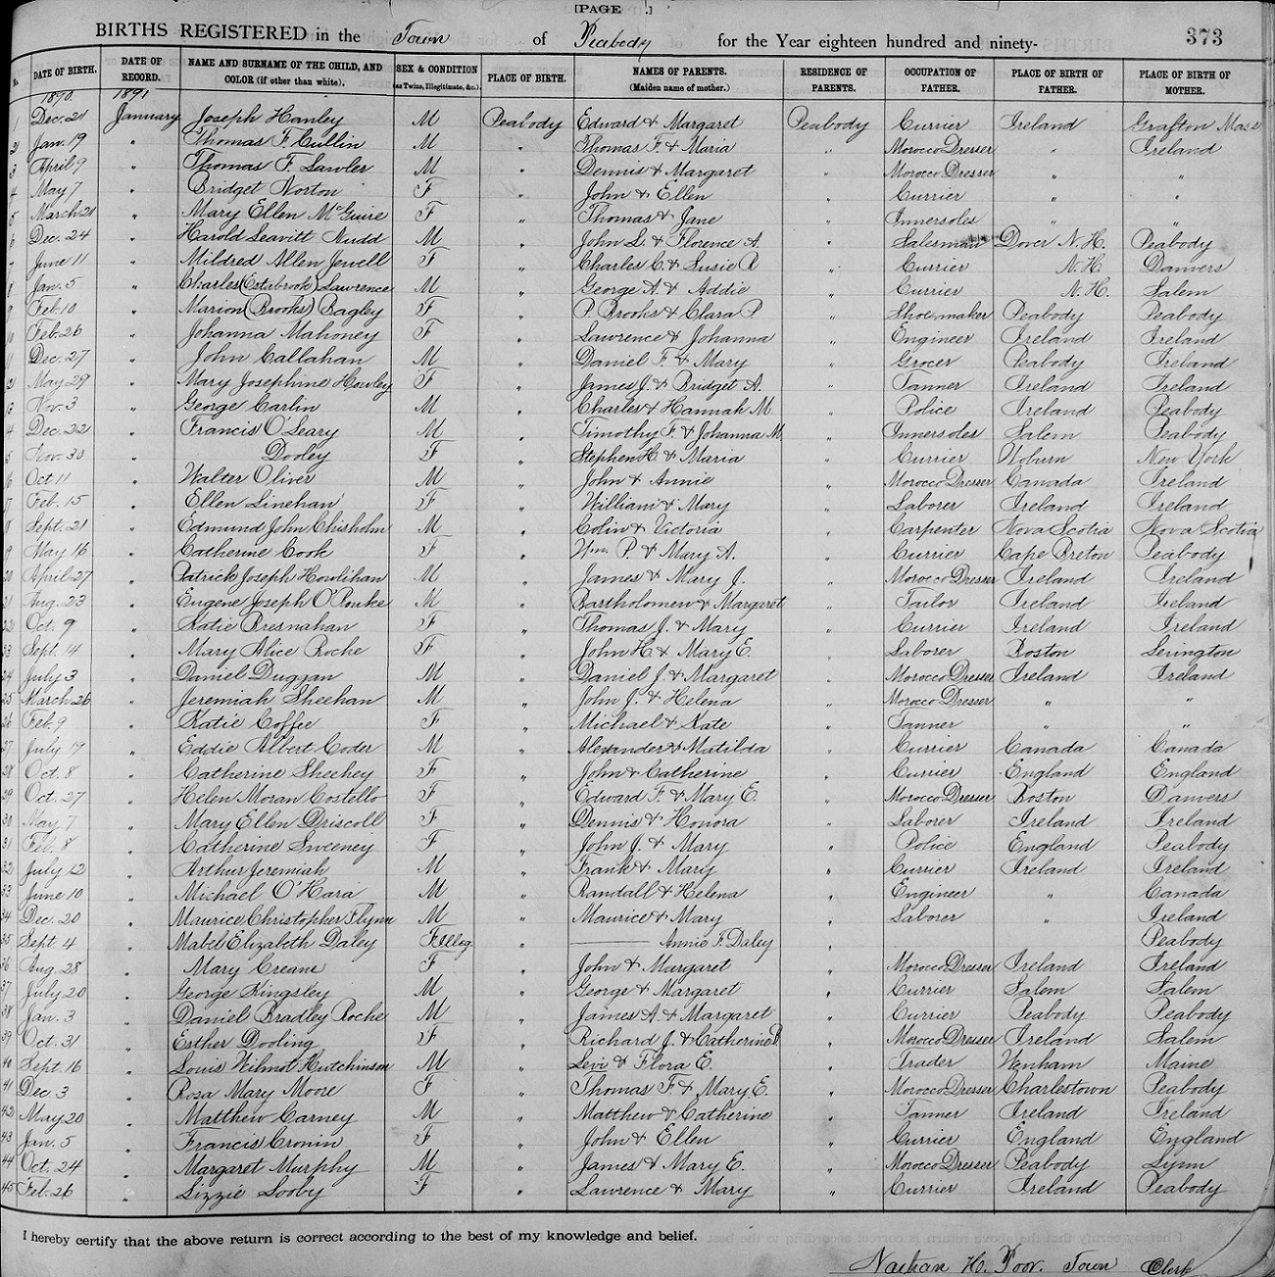 [PAGE ]
BIRTHS REGISTERED in the Town of Peabody for the Year eighteen hundred and ninety- 373
No. DATE OF BIRTH. DATE OF RECORD. NAME AND SURNAME OF THE CHILD, AND COLOR (if other than white). SEX & CONDITION (as Twins, Illegitimate, &c.) PLACE OF BIRTH. NAMES OF PARENTS. (Maiden name of mother.) RESIDENCE OF PARENTS. OCCUPATION OF FATHER. PLACE OF BIRTH OF FATHER. PLACE OF BIRTH OF MOTHER.
1890 1891
1 Dec. 21 January Joseph Hanley M Peabody Edward & Margaret Peabody Currier Ireland Grafton Mass
2 Jan. 19 " Thomas F. Cullin M " Thomas F. & Maria " Morocco Dresser " Ireland
3 April 9 " Thomas F. Lawler M " Dennis & Margaret " Morocco Dresser " "
4 May 7 " Bridget Norton F " John & Ellen " Currier " "
5 March 21 " Mary Ellen McGuire F " Thomas & Jane " Innersoles " "
6 Dec. 24 " Harold Leavitt Nudd M " John L. & Florence A. " Salesman Dover N.H. Peabody
7 June 11 " Mildred Allen Jewell F " Charles C. & Susie P. " Currier N.H. Danvers
8 Jan. 5 " Charles (Estabrook) Lawrence M " George A. & Addie " Currier N.H. Salem
9 Feb. 10 " Marion (Brooks) Bagley F " P. Brooks & Clara P. " Shoemaker Peabody Peabody
10 Feb. 26 " Johanna Mahoney F " Lawrence & Johanna " Engineer Ireland Ireland
11 Dec. 27 " John Callahan M " Daniel F. & Mary " Grocer Peabody Ireland
12 May 29 " Mary Josephine Howley F " James J. & Bridget A. " Tanner Ireland Ireland
13 Nov. 3 " George Carlin M " Charles & Hannah M. " Police Ireland Peabody
14 Dec. 22 " Francis O'Leary M " Timothy F. & Johanna M. " Innersoles Salem Peabody
15 Nov. 30 " Dooley F " Stephen H. & Maria " Currier Woburn New York
16 Oct 11 " Walter Oliver M " John & Annie " Morocco Dresser Canada Ireland
17 Feb. 15 " Ellen Linehan F " William & Mary " Laborer Ireland Ireland
18 Sept. 21 " Edmund John Chisholm M " Colin & Victoria " Carpenter Nova Scotia Nova Scotia
19 May 16 " Catherine Cook F " Wm. P. & Mary A. " Currier Cape Breton Peabody
20 April 27 " Patrick Joseph Howlihan M " James & Mary J. " Morocco Dresser Ireland Ireland
21 Aug. 23 " Eugene Joseph O'Rouke M " Bartholomew & Margaret " Tailor Ireland Ireland
22 Oct. 9 " Katie Bresnahan F " Thomas J. & Mary " Currier Ireland Ireland
23 Sept. 14 " Mary Alice Roche F " John H. & Mary E. " Laborer Boston Lexington
24 July 3 " Daniel Duggan M " Daniel J. & Margaret " Morocco Dresser Ireland Ireland
25 March 26 " Jeremiah Sheehan M " John J. & Helena " Morocco Dresser " "
26 Feb. 9 " Katie Coffee F " Michael & Kate " Tanner " "
27 July 19 " Eddie Albert Coder M " Alexander & Matilda " Currier Canada Canada
28 Oct. 8 " Catherine Sheehey F " John & Catherine " Currier England England
29 Oct. 27 " Helen Moran Costello F " Edward F. & Mary E. " Morocco Dresser Boston Danvers
30 May 7 " Mary Ellen Driscoll F " Dennis & Honora " Laborer Ireland Ireland
31 Feb. 8 " Catherine Sweeney F " John J. & Mary " Police England Peabody
32 July 12 " Arthur Jeremiah M " Frank & Mary " Currier Ireland Ireland
33 June 10 " Michael O'Hara M " Randall & Helena " Engineer " Canada
34 Dec. 20 " Maurice Christopher Flynn M " Maurice & Mary " Laborer " Ireland
35 Sept. 4 " Mabel Elizabeth Daley F Illeg " Annie F. Daley " Peabody
36 Aug. 28 " Mary Creane F " John & Margaret " Morocco Dresser Ireland Ireland
37 July 20 " George Kingsley M " George & Margaret " Currier Salem Salem
38 Jan. 3 " Daniel Bradley Roche M " James A. & Margaret " Currier Peabody Peabody
39 Oct. 31 " Esther Dooling F " Richard J. & Catherine " Morocco Dresser Ireland Salem
40 Sept. 16 " Louis Wilmot Hutchinson M " Levi & Flora E. " Trader Wenham Maine
41 Dec. 3 " Rosa Mary Moore F " Thomas F. & Mary E. " Morocco Dresser Charlestown Peabody
42 May 20 " Matthew Carney M " Matthew & Catherine " Tanner Ireland Ireland
43 Jan. 5 " Francis Cronin F " John & Ellen " Currier England England
44 Oct. 24 " Margaret Murphy M " James & Mary E. " Morocco Dresser Peabody Lynn
45 Feb. 26 " Lizzie Looby F " Lawrence & Mary " Currier Ireland Peabody
I hereby certify that the above return is correct according to the best of my knowledge and belief.
Nathan H. Poor. Town Clerk